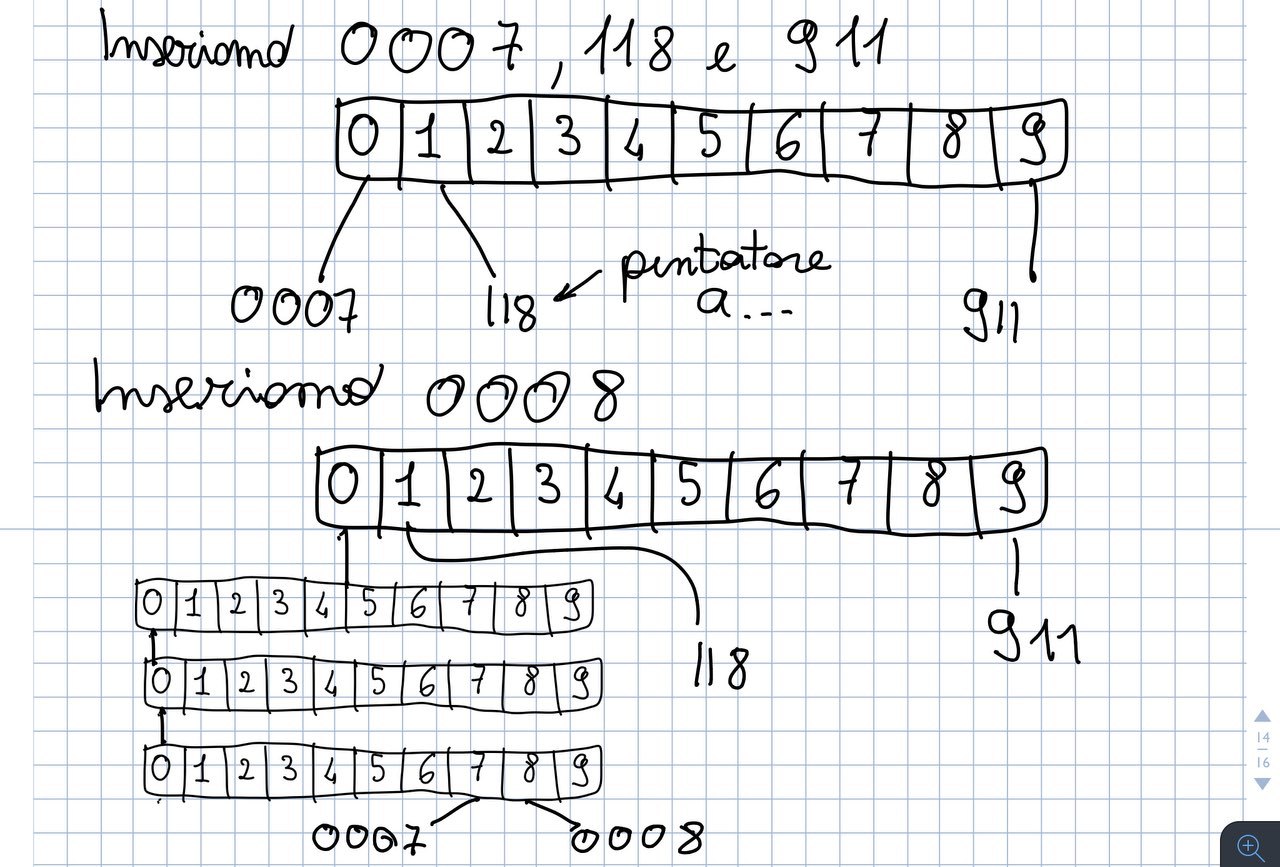 Inseriamo 0007, 118 e 911
0 1 2 3 4 5 6 7 8 9
puntatore
a...
0007 118 911
Inseriamo 0008
0 1 2 3 4 5 6 7 8 9
0 1 2 3 4 5 6 7 8 9
118 911
0 1 2 3 4 5 6 7 8 9
0 1 2 3 4 5 6 7 8 9
0007 0008
14
16